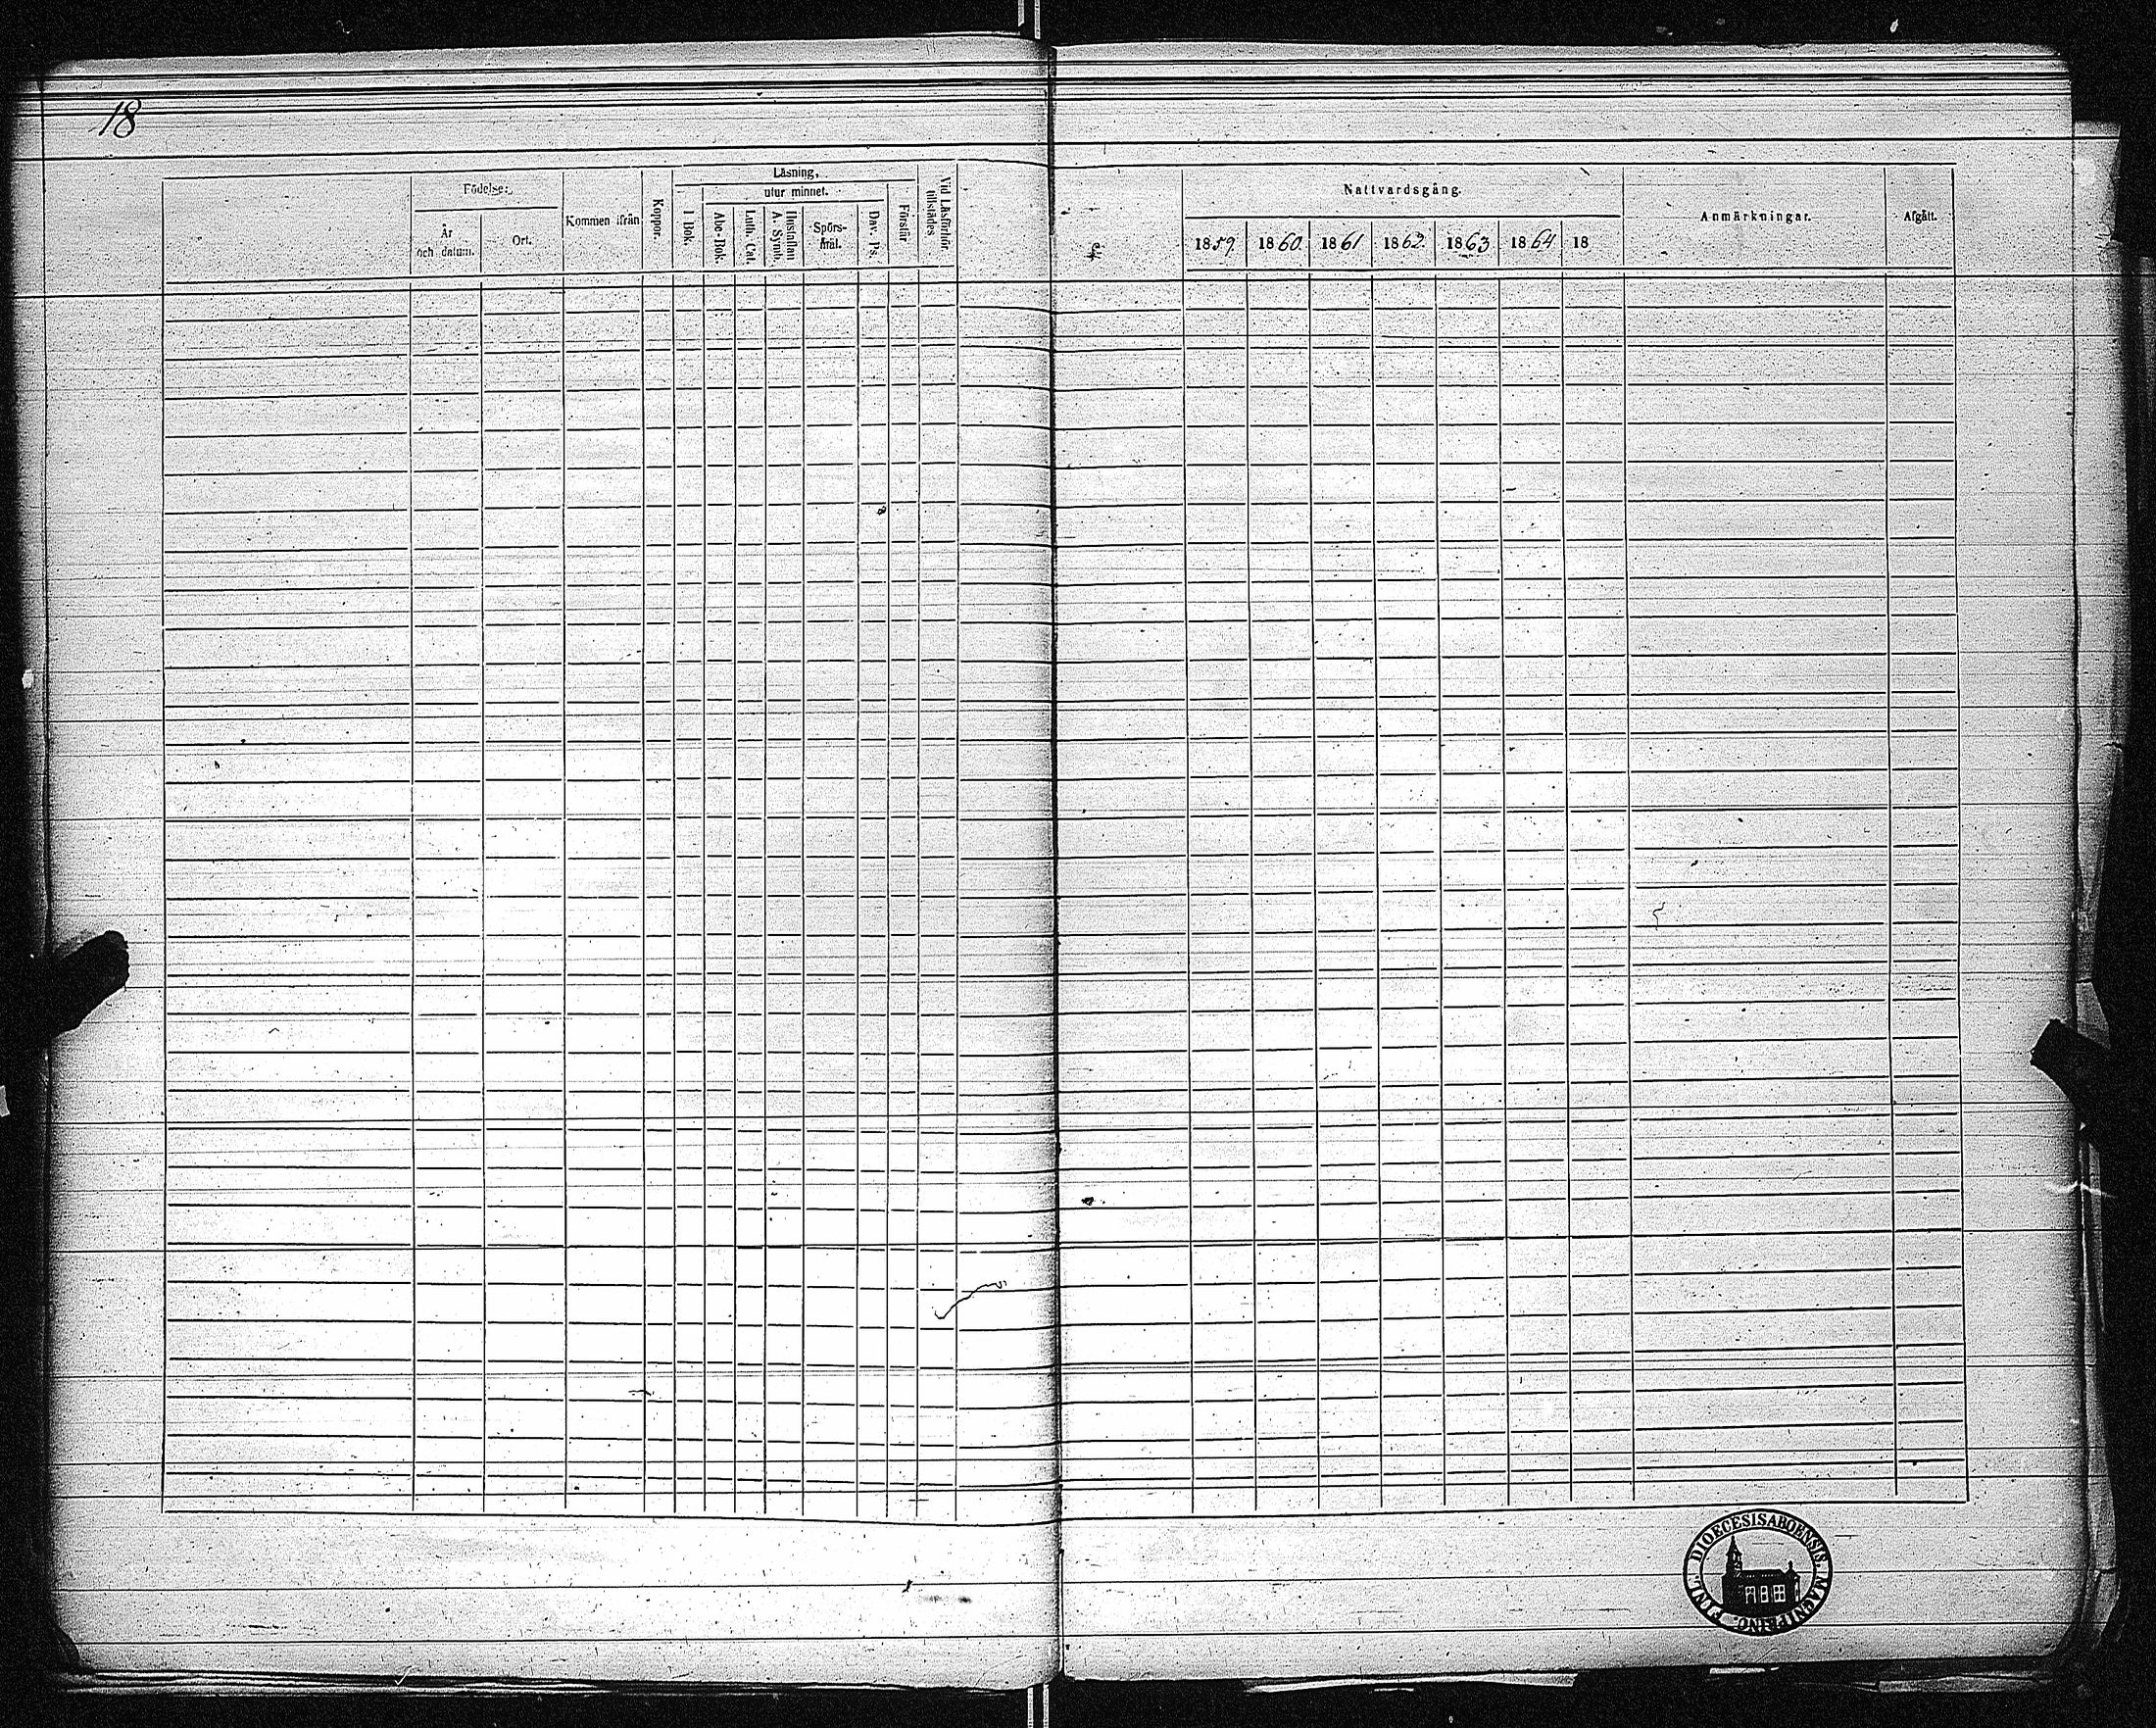 18
Födelse:
År
och datum.
Ort.
Kommen ifrån
Koppor.
Läsning,
utur minnet.
I Bok.
Abc-Bok.
Luth. Cat.
Hustaflan
A. Symb.
Spörs-
mål.
Dav. Ps.
Förestår
Vid Läsförhör
tillstädes
Nattvardsgång.
1859. 1860. 1861 1862. 1863 1864 18
Anmärkningar.
Afgått.
DIOECESIS ABOENSIS. MAGNI PRINC. FINL.